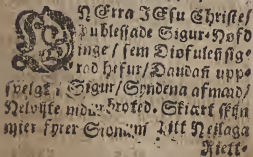 O HErra JEsu Christe/
publessade Sigur-Höfd
inge/ sem Diöfulen sig-
rad hefur/ Daudañ upp-
svelgt/ Sigur/ Syndena afmaad/
Helvijte nidur broted. Skiart skijn
mier fyrer Sionum Þitt Heilaga
Riett-